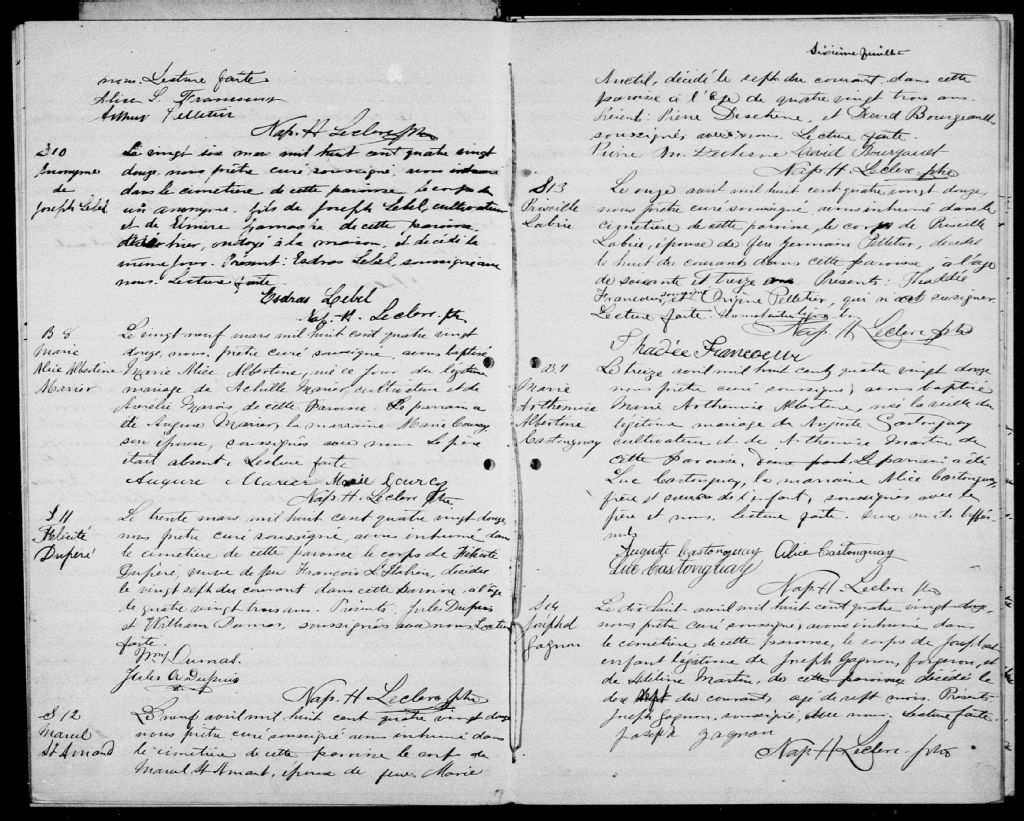 nous. Lecture faite
Alice S. Francoeur
Arthur Pelletier
Nap. H Leclerc ptre
S 10
Anonyme
de
Joseph Lebel
Le vingt six mars mil huit cent quatre vingt
douze, nous prêtre curé soussigné, avons inhumé
dans le cimetière de cette paroisse le corps de
un anonyme, fils de Joseph Lebel, cultivateur
et de Elmire Gamache de cette paroisse
hier, ondoyé à la maison, et décédé le
même jour. Présent: Esdras Lebel soussigné avec
nous. Lecture faite
Esdras Lebel
Nap. H. Leclerc ptr
B 8
Marie
Alice Albertine
Marier
Le vingt neuf mars mil huit cent quatre vingt
douze, nous, prêtre curé soussigné, avons baptisé
Marie Alice Albertine, née ce jour du légitime
mariage de Achille Marier, cultivateur et de
Aurélie Marois, de cette Paroisse. Le parrain a
été Augure Marier, la marraine Marie Courcy
son épouse, soussignés avec nous. Le père
était absent. Lecture faite
Augure Marier Marie Courcy
Nap. H. Leclerc Ptre
S 11
Félicité
Dupéré
Le trente mars mil huit cent quatre vingt douze,
nous prêtre curé soussigné, avons inhumé dans
le cimetière de cette paroisse le corps de Félicité
Dupéré, veuve de feu François L'Italien, décédée
le vingt sept du courant dans cette Paroisse, à l'âge
de quatre vingt trois ans. Présents: Jules Dupuis
et William Dumas, soussignés avec nous Lecture
faite.
Wm Dumas.
Jules A Dupuis
Nap. H Leclerc ptre
S 12
Marcel
St Amand
Le neuf avril mil huit cent quatre vingt douze
nous prêtre curé soussigné avons inhumé dans
le cimetière de cette paroisse le corps de
Marcel St Amant, époux de feue Marie
Sixième feuillet
Anctil, décédé le sept du courant dans cette
paroisse à l'âge de quatre vingt trois ans.
Présents: Pierre Deschene, et David Bourgeault
soussignés avec nous. Lecture faite.
Pierre M. Duchesne David Bourgault
Nap. H Leclerc. ptre
S 13
Priscille
Labrie
Le onze avril mil huit cent quatre vingt douze,
nous prêtre curé soussigné, avons inhumé dans le
cimetière de cette paroisse, le corps de Priscille
Labrie, épouse de feu Germain Pelletier, décédée
le huit du courant dans cette paroisse, à l'âge
de soixante et treize ans Présents: Thaddée
Francoeur, soussigné et Onézime Pelletier, qui n'a su signer
Lecture faite.
Nap. H Leclerc ptre
Thadée Francoeur
B 9
Marie
Arthemise
Albertine
Castonguay
Le treize avril mil huit cent quatre vingt douze
nous prêtre curé soussigné, avons baptisé
Marie Arthemise Albertine, née la veille du
légitime mariage de Auguste Castonguay
cultivateur et de Arthemise Martin de
cette Paroisse. Le parrain a été
Luc Castonguay, la marraine Alice Castonguay,
frère et soeur de l'enfant, soussignés avec le
père et nous. Lecture faite.
Auguste Castonguay Alice Castonguay
Luc Castonguay
Nap. H Leclerc ptre
S 14
Joseph
Gagnon
Le dix huit avril mil huit cent quatre vingt douze,
nous prêtre curé soussigné, avons inhumé dans
le cimetière de cette paroisse, le corps de Joseph
enfant légitime de Joseph Gagnon, forgeron, et
de Hélène Martin, de cette paroisse décédé le
dix sept du courant, agé de sept mois. Présent:
Joseph Gagnon, soussigné, avec nous. Lecture faite.
Joseph Gagnon
Nap. H Leclerc. ptre